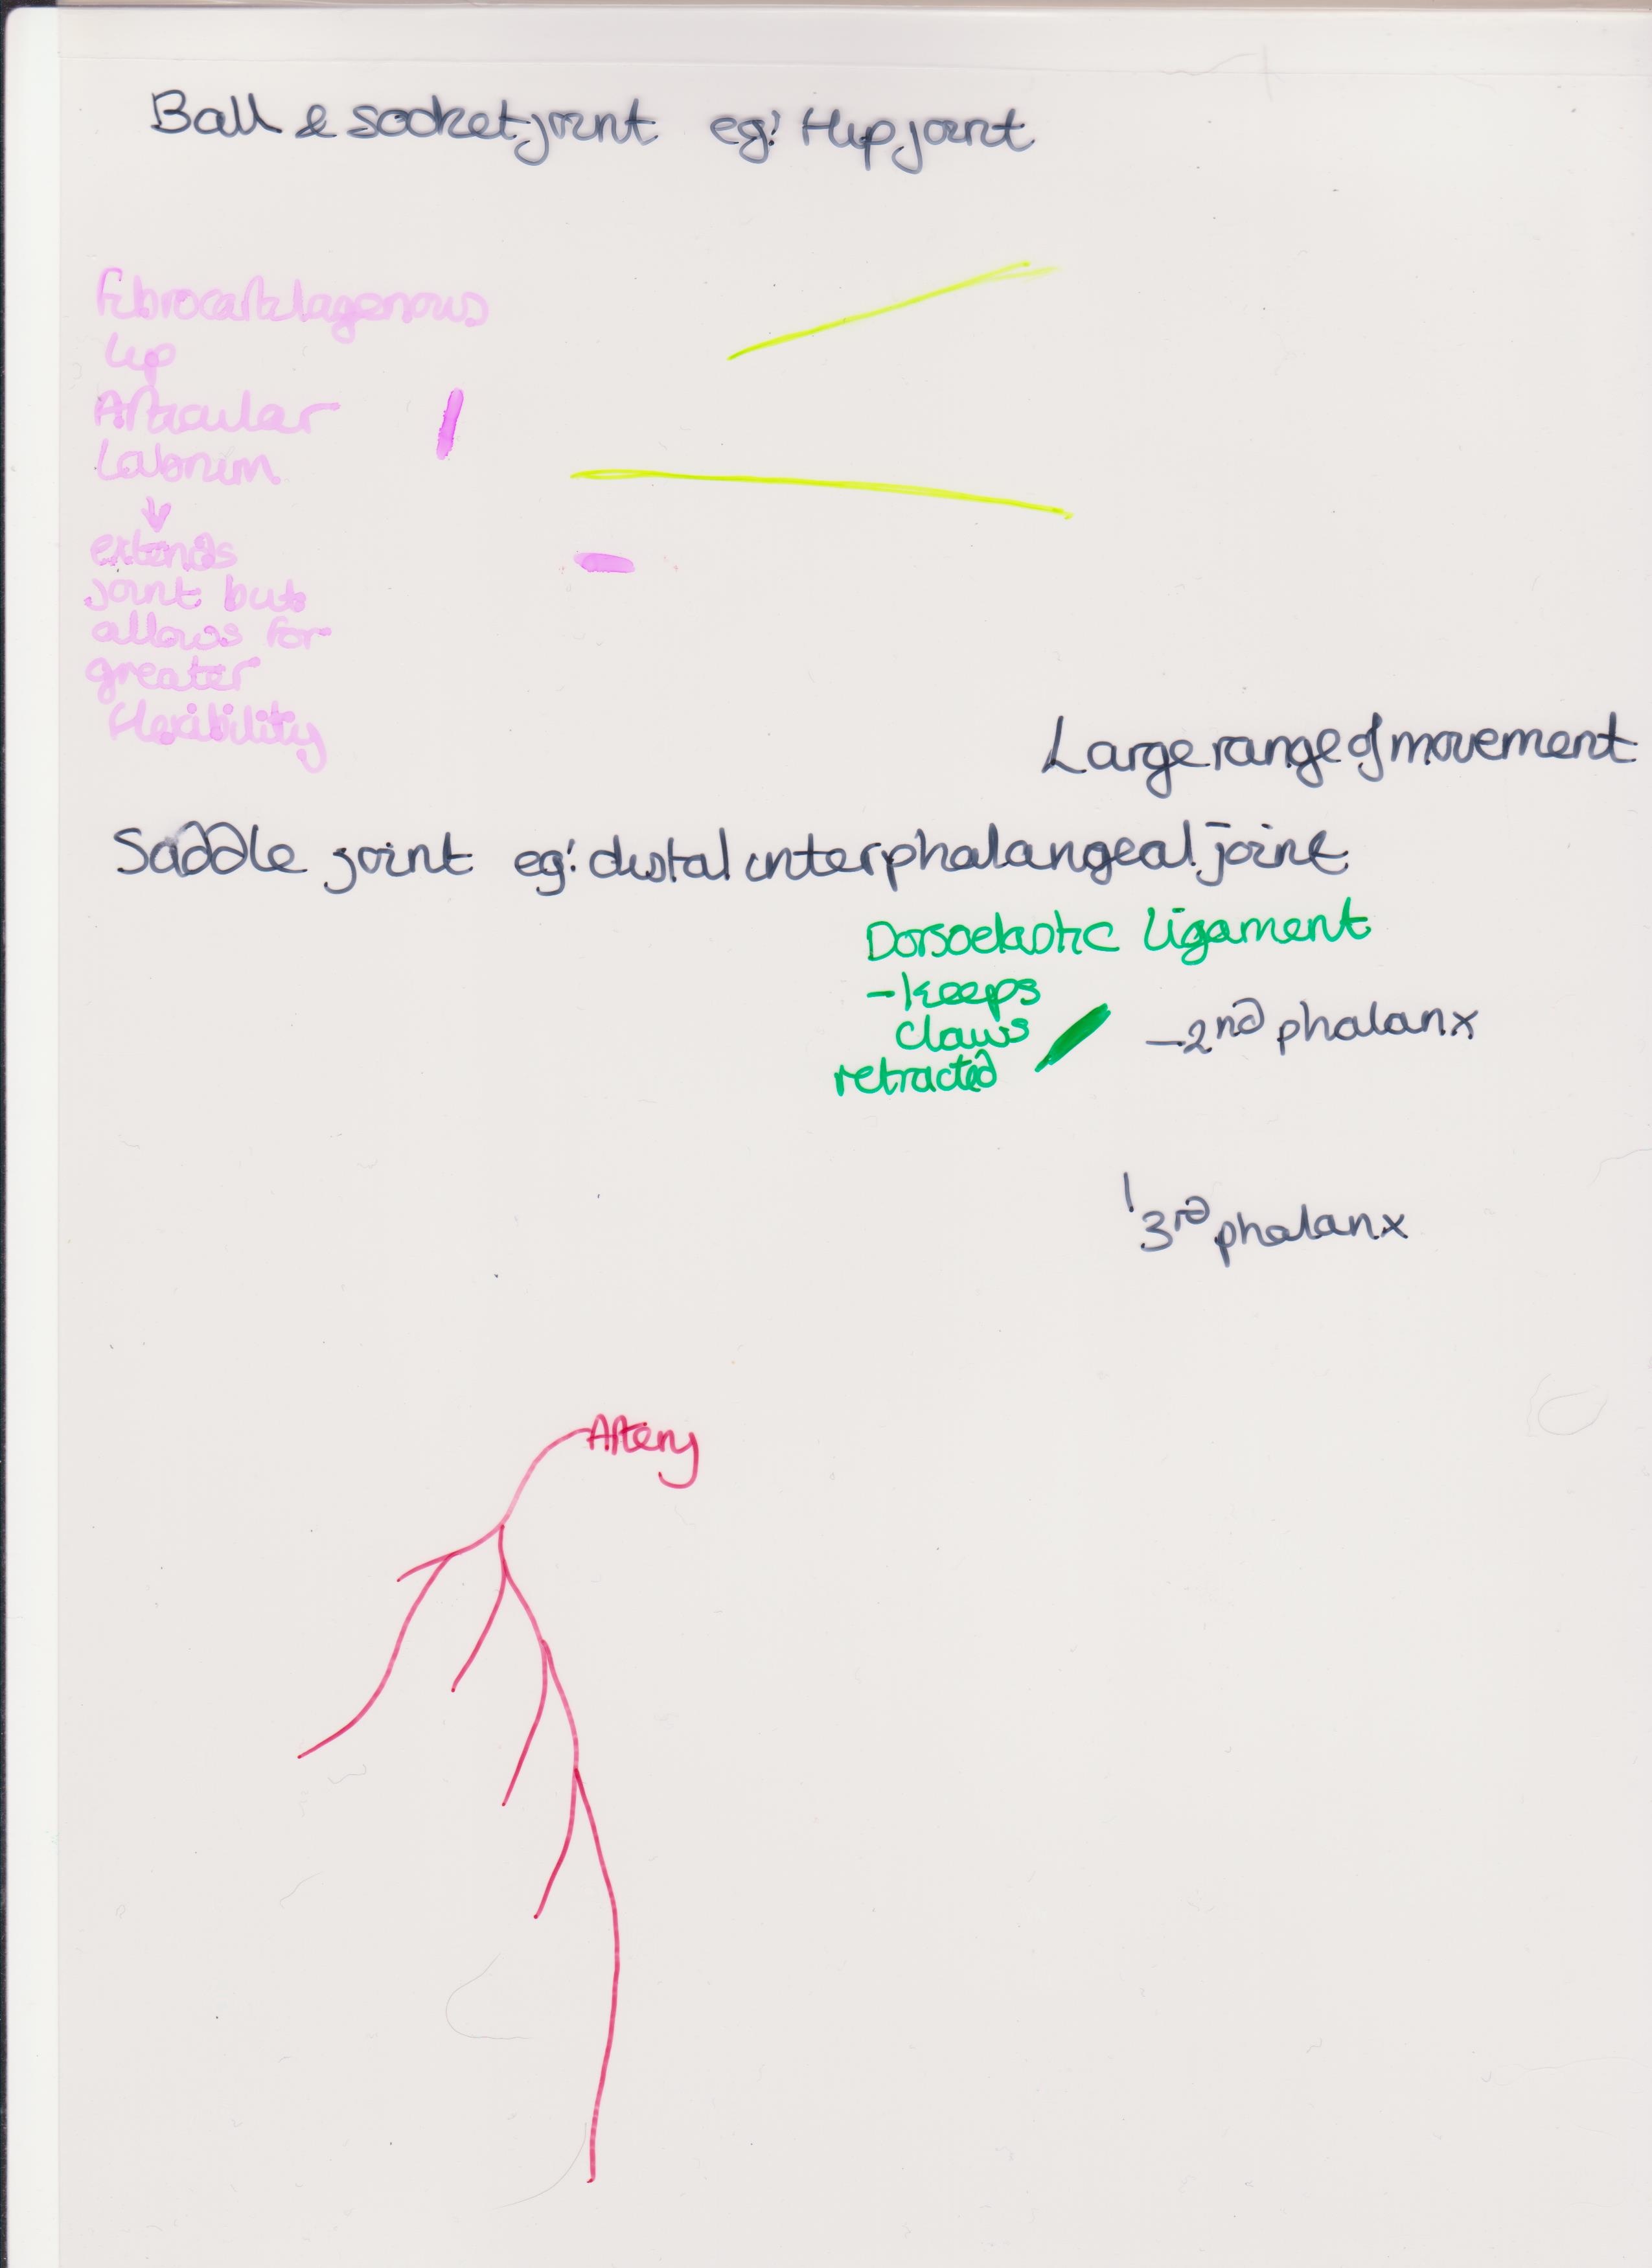 Ball & socket joint eg: Hip joint
fibrocartilagenous
lip
Articular
Labrum
↓
extends
joint but
allows for
greater
flexibility
Large range of movement
Saddle joint eg: distal interphalangeal joint
Dorsoelastic ligament
- keeps
claws
retracted
- 2nd phalanx
3rd phalanx
Artery